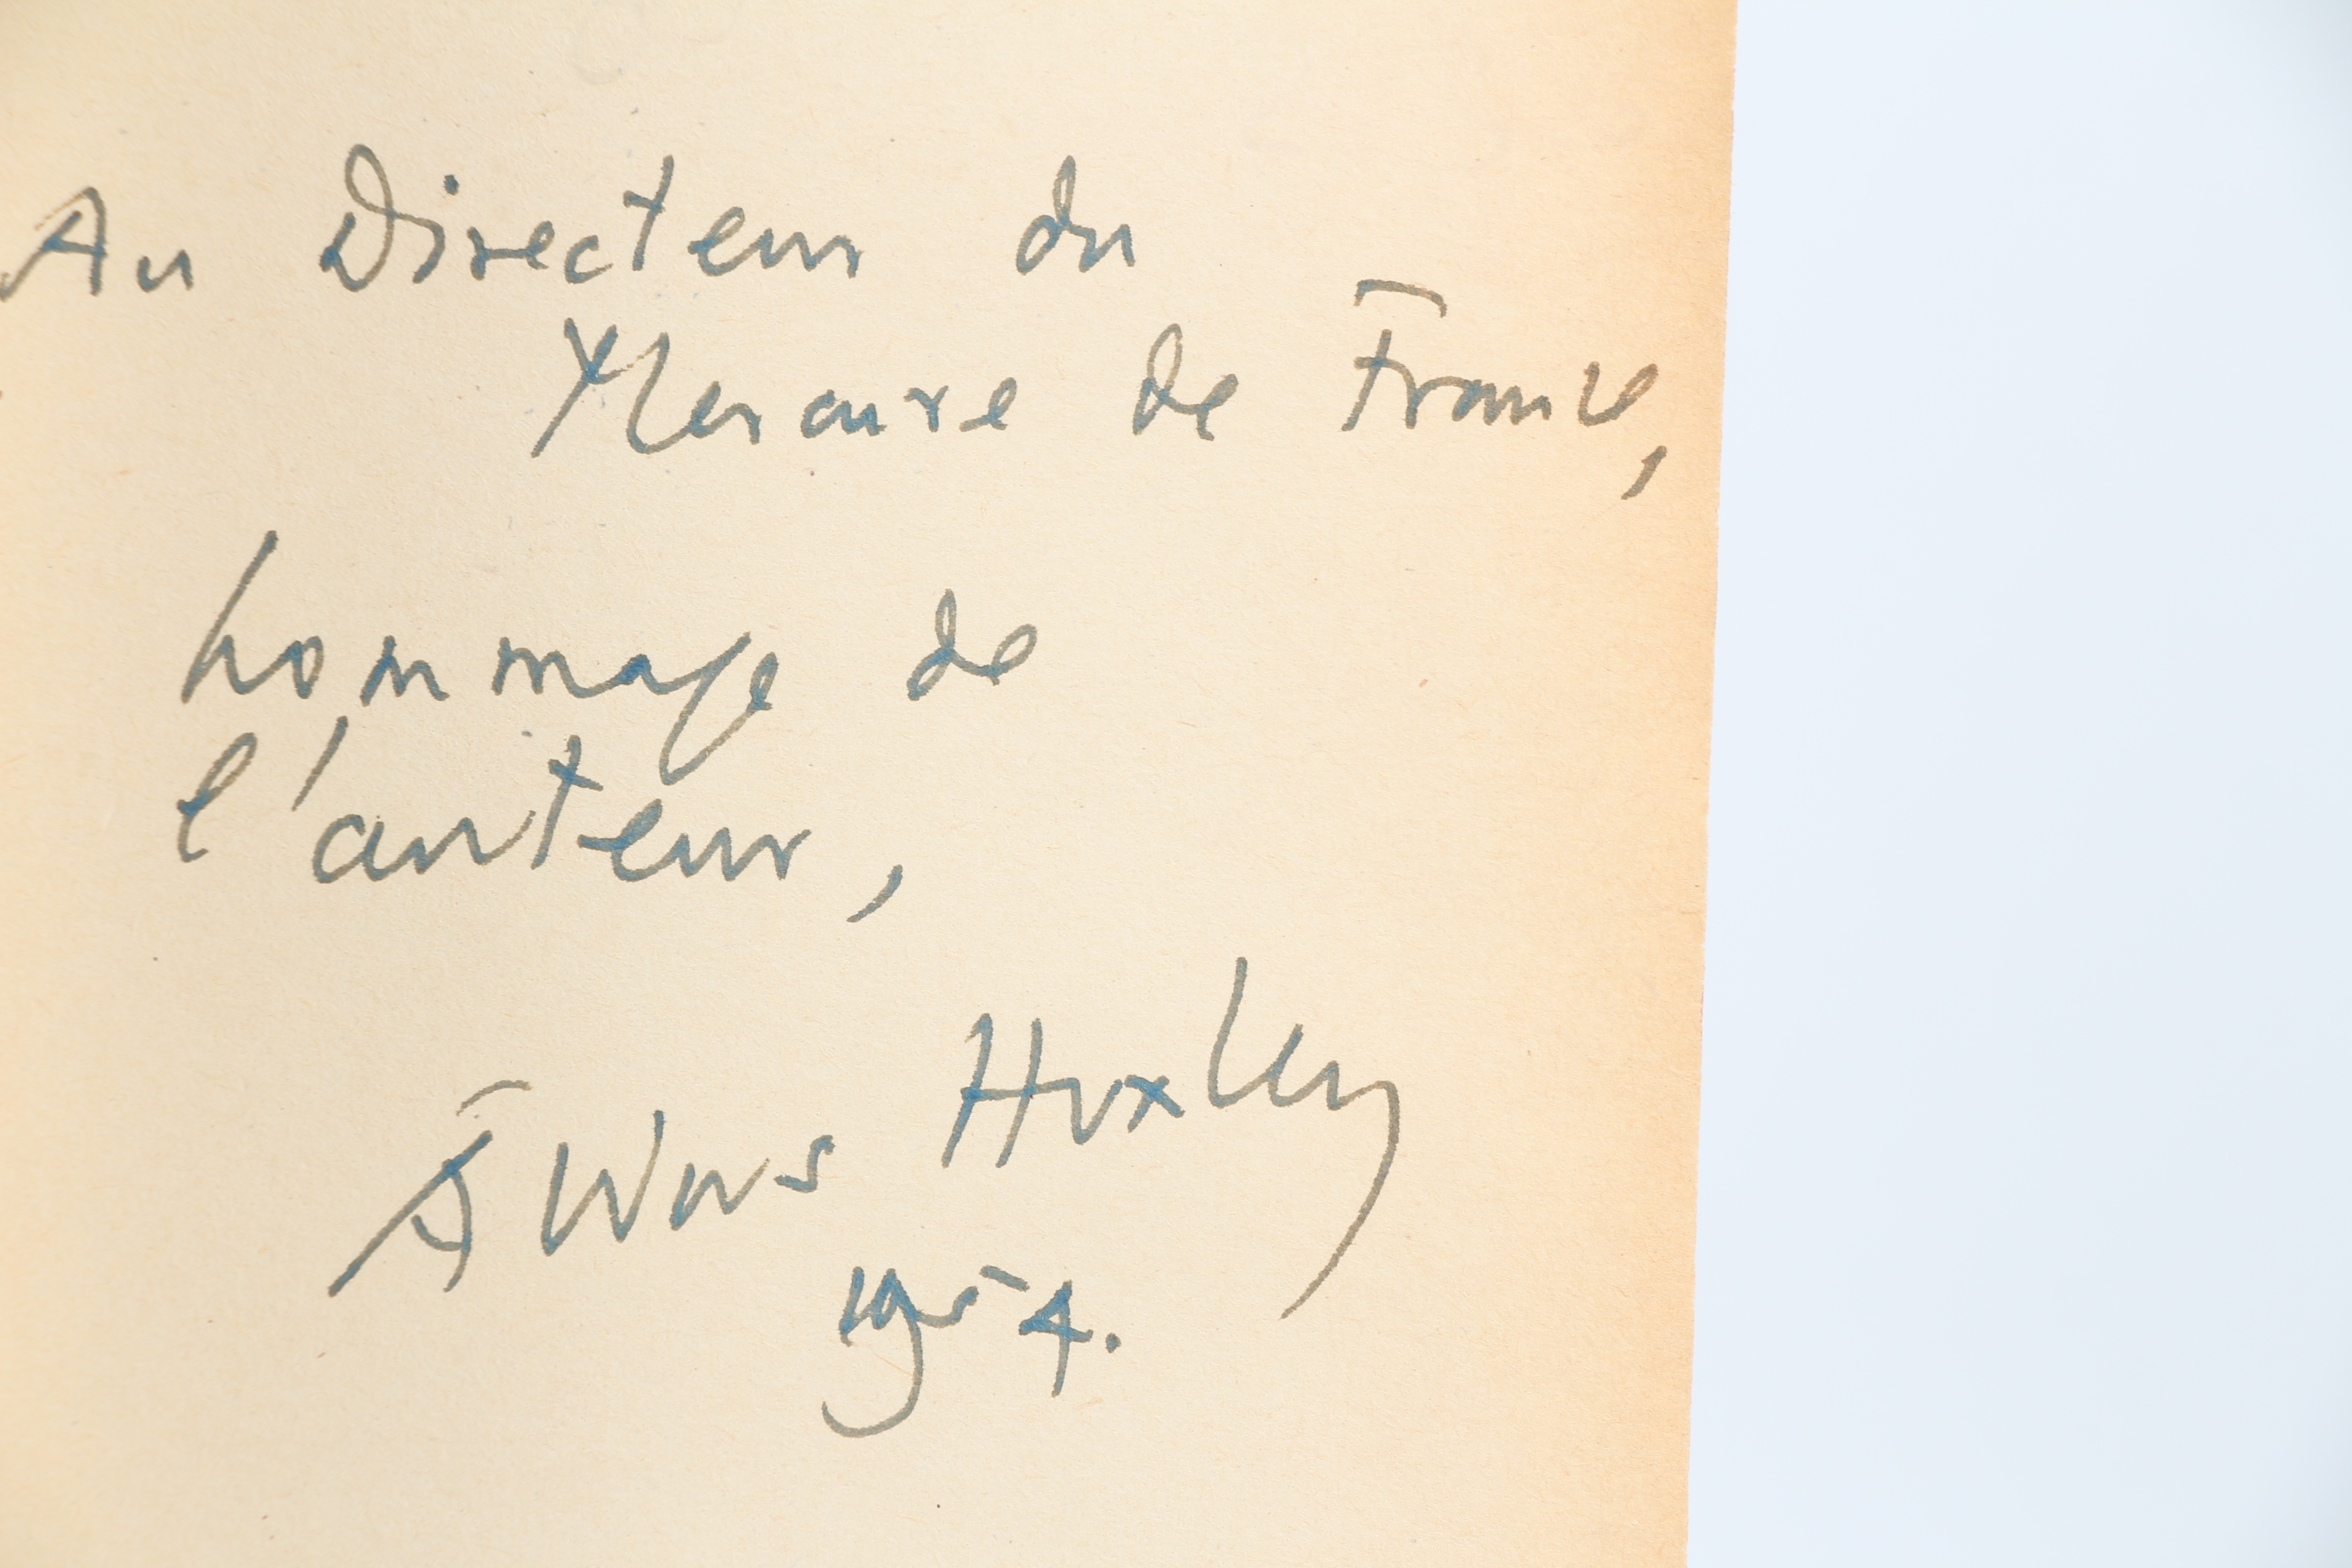 Au Directeur du
Mercure de France,
hommage de
l'auteur,
Aldous Huxley
1954.